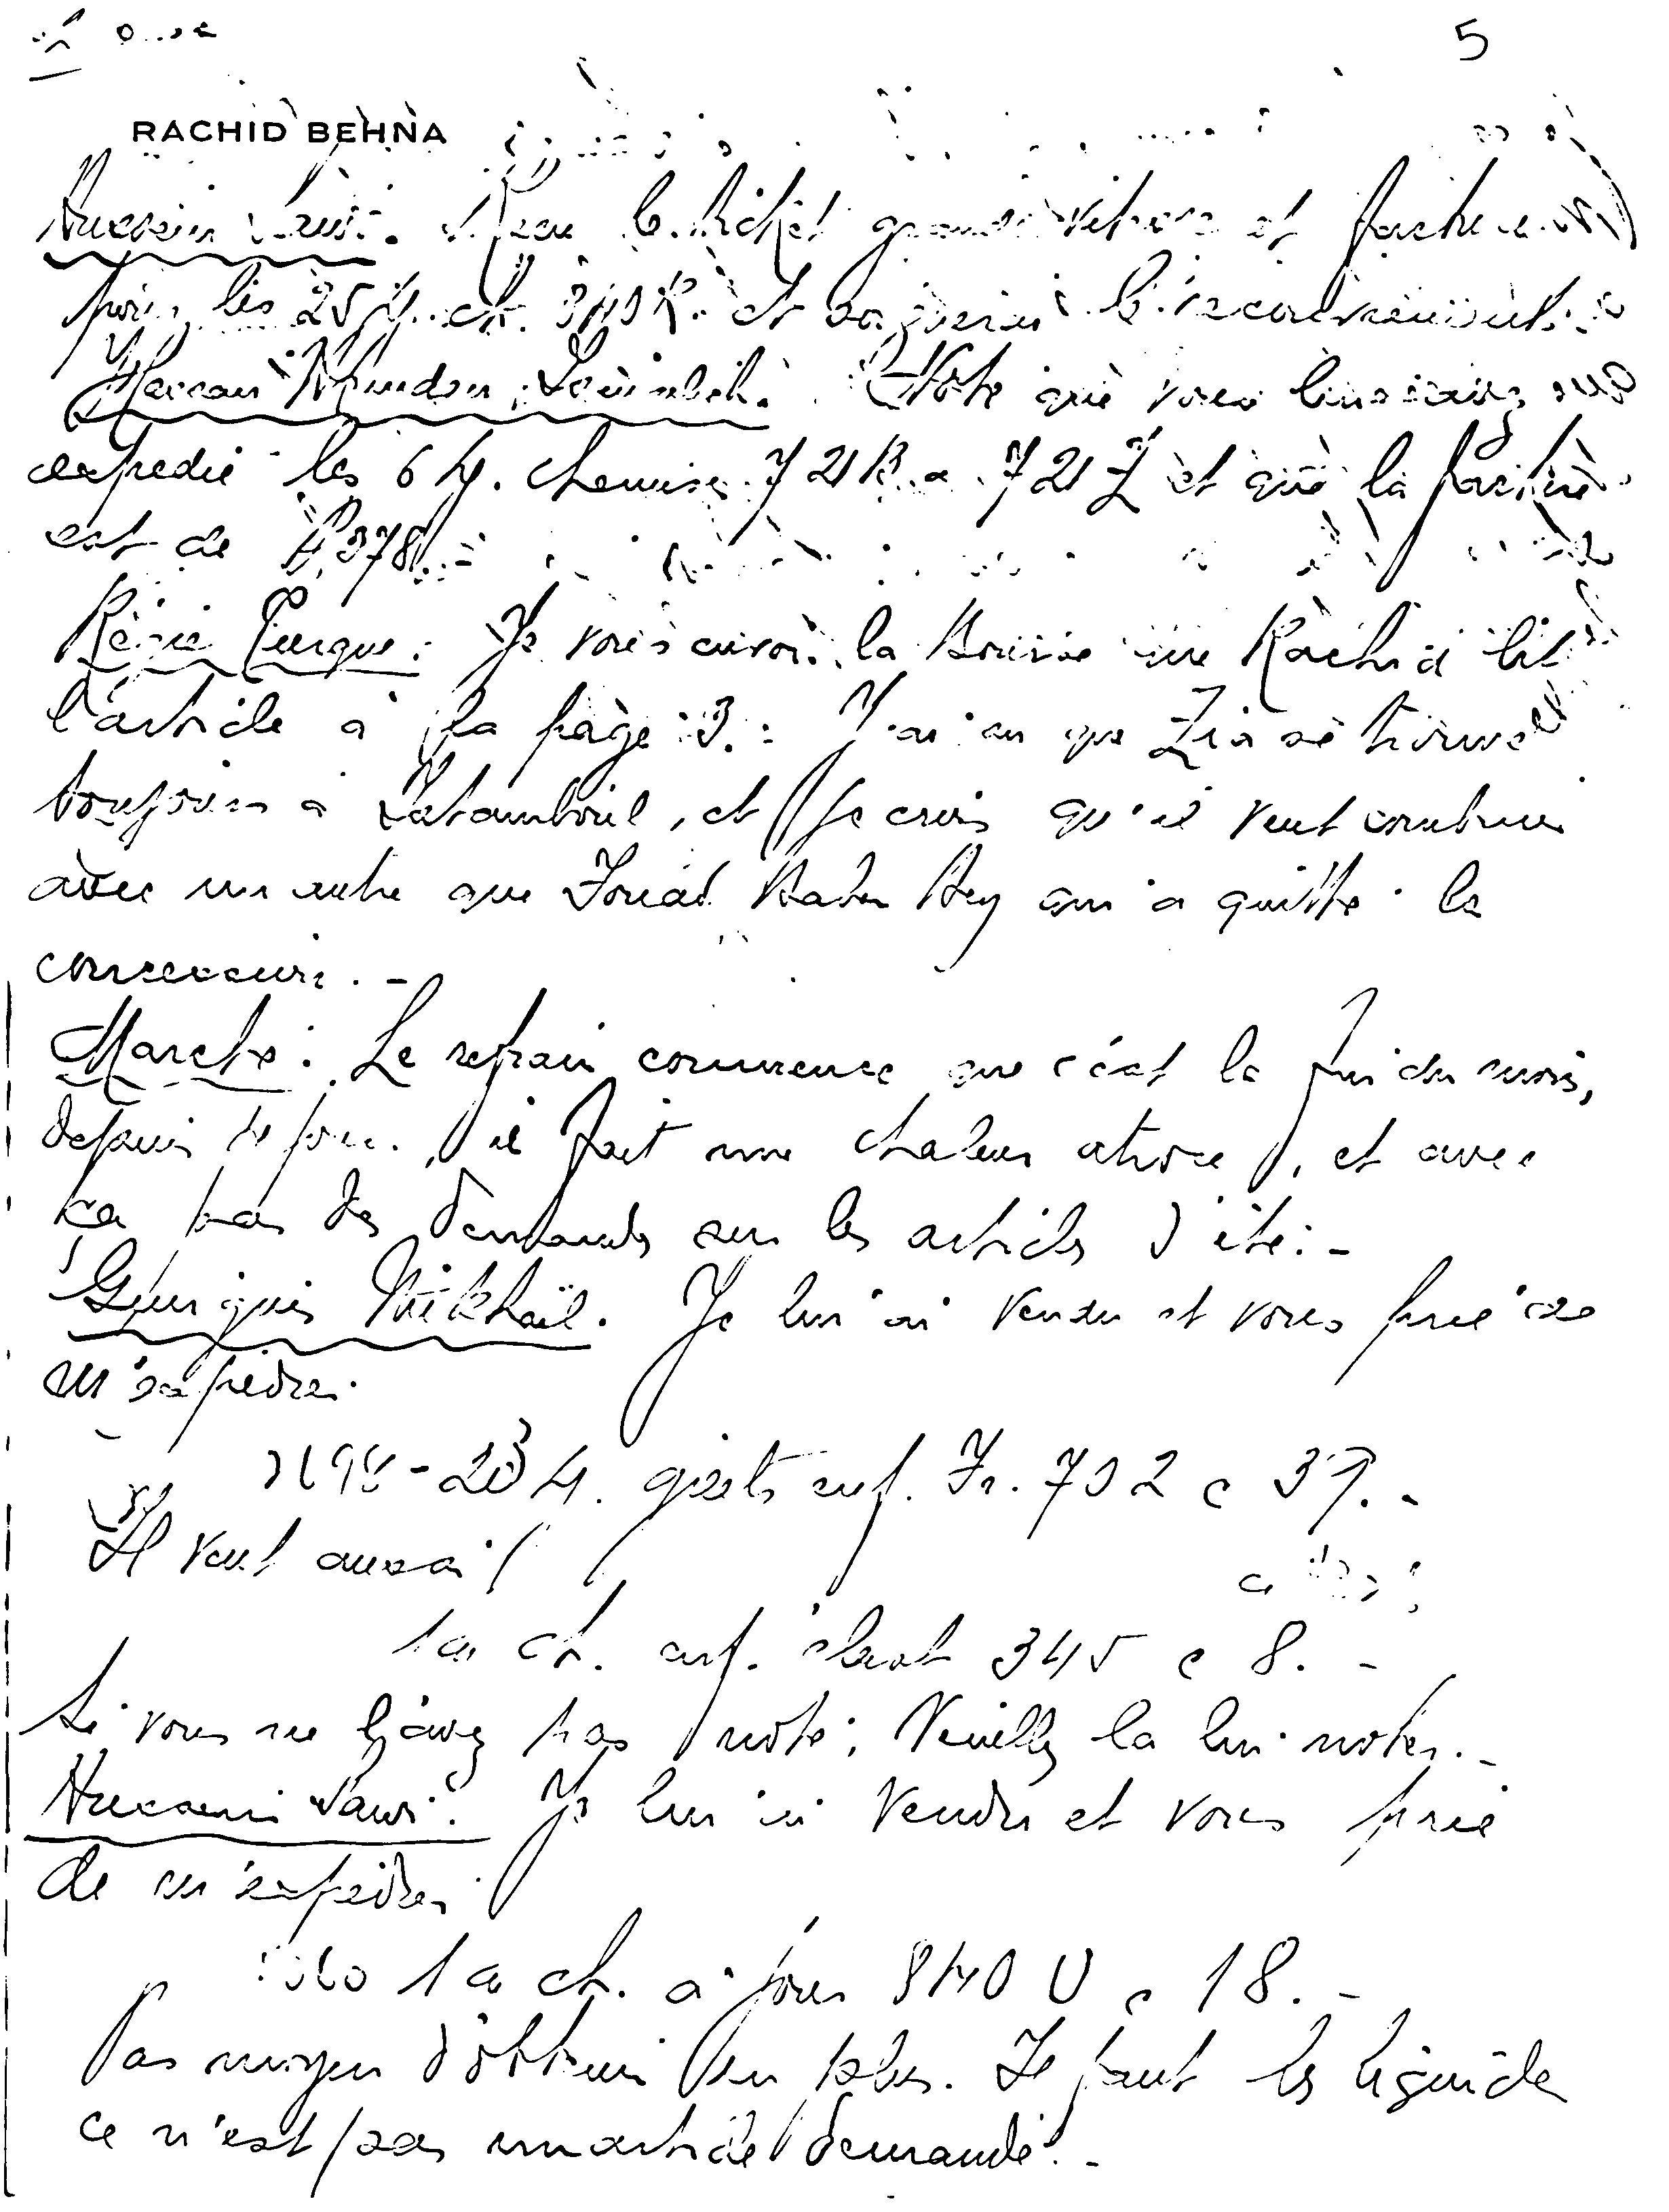 5
RACHID BEHNA
Hussein Sawi. Reçu le ticket grande vitesse et facture
pour les 25 H. ch. 340 R. et
Hassan Noteé que vous lui avez
expedié les 6 H. chemises 721 B. a 721 Z et que la facture
est de P. 378.-
Régie Turque: Je vous envoie la Bourse que Rachid lit
l'article a la page 3.: J'ai su que Zia se trouve
toujours a Istamboul, et je crois qu'il veut continuer
avec un autre que Fouad Bader Bey qui a quitté la
concession.-
Marché: Le refrain commence que c'est la fin du mois,
depuis 4 jours, il fait une chaleur atroce, et avec
ça pas des demandes sur les articles d'été.-
Guirguis Mikhaïl. Je lui ai vendu et vous prie de
m'expedier.
4. gilets enf. Fr. 702 a 39.-
Il veut aussi
1a ch. enf. 345 a 8.-
Si vous ne l'avez pas noté; Veuillez la lui noter.-
Hussein Sawi: Je lui ai vendu et vous prie
de m'expedier
1a ch. a jour 840 U a 18.-
Pas moyen d'obtenir un plus. Il faut les liquider
ce n'est pas un article demandé.-